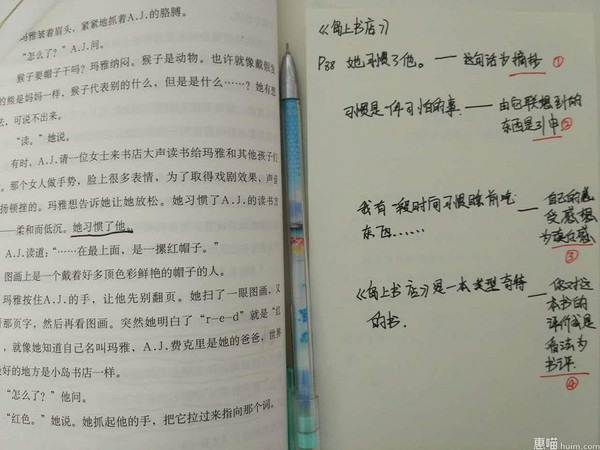 玛雅皱着眉头，紧紧地抓着A.J.的胳膊。
“怎么了？”A.J.问。
猴子要帽子干吗？玛雅纳闷。猴子是动物。也许就像戴假
的熊是妈妈一样，猴子代表别的什么，但是是什么……？她有想
去，可说不出来。
“读。”她说。
有时，A.J.请一位女士来书店大声读书给玛雅和其他孩子们
。那个女人做手势，脸上很多表情，为了取得戏剧效果，声音
扬顿挫的。玛雅想告诉她让她放松。她习惯了A.J.的读书方
——柔和而低沉。她习惯了他。
A.J.读道：“……在最上面，是一摞红帽子。”
图画上是一个戴着好多顶色彩鲜艳的帽子的人。
玛雅按住A.J.的手，让他先别翻页。她扫了一眼图画，又
那页字，然后再看图画。突然她明白了“r-e-d”就是“红
，就像她知道自己名叫玛雅，A.J.费克里是她的爸爸，世界
最好的地方是小岛书店一样。
“怎么了？”他问。
“红色。”她说。她抓起他的手，把它拉过来指向那个词。
《岛上书店》
P88 她习惯了他。——这句话为摘抄 ①
习惯是一件可怕的事——由它联想到的
东西是引申 ②
我有一段时间习惯睡前吃
东西……
——自己的感
受感想
为读后感
③
《岛上书店》是一本类型奇特
的书.
——你对这
本书的
评价或是
看法为
书评.
④
惠喵 huim.com